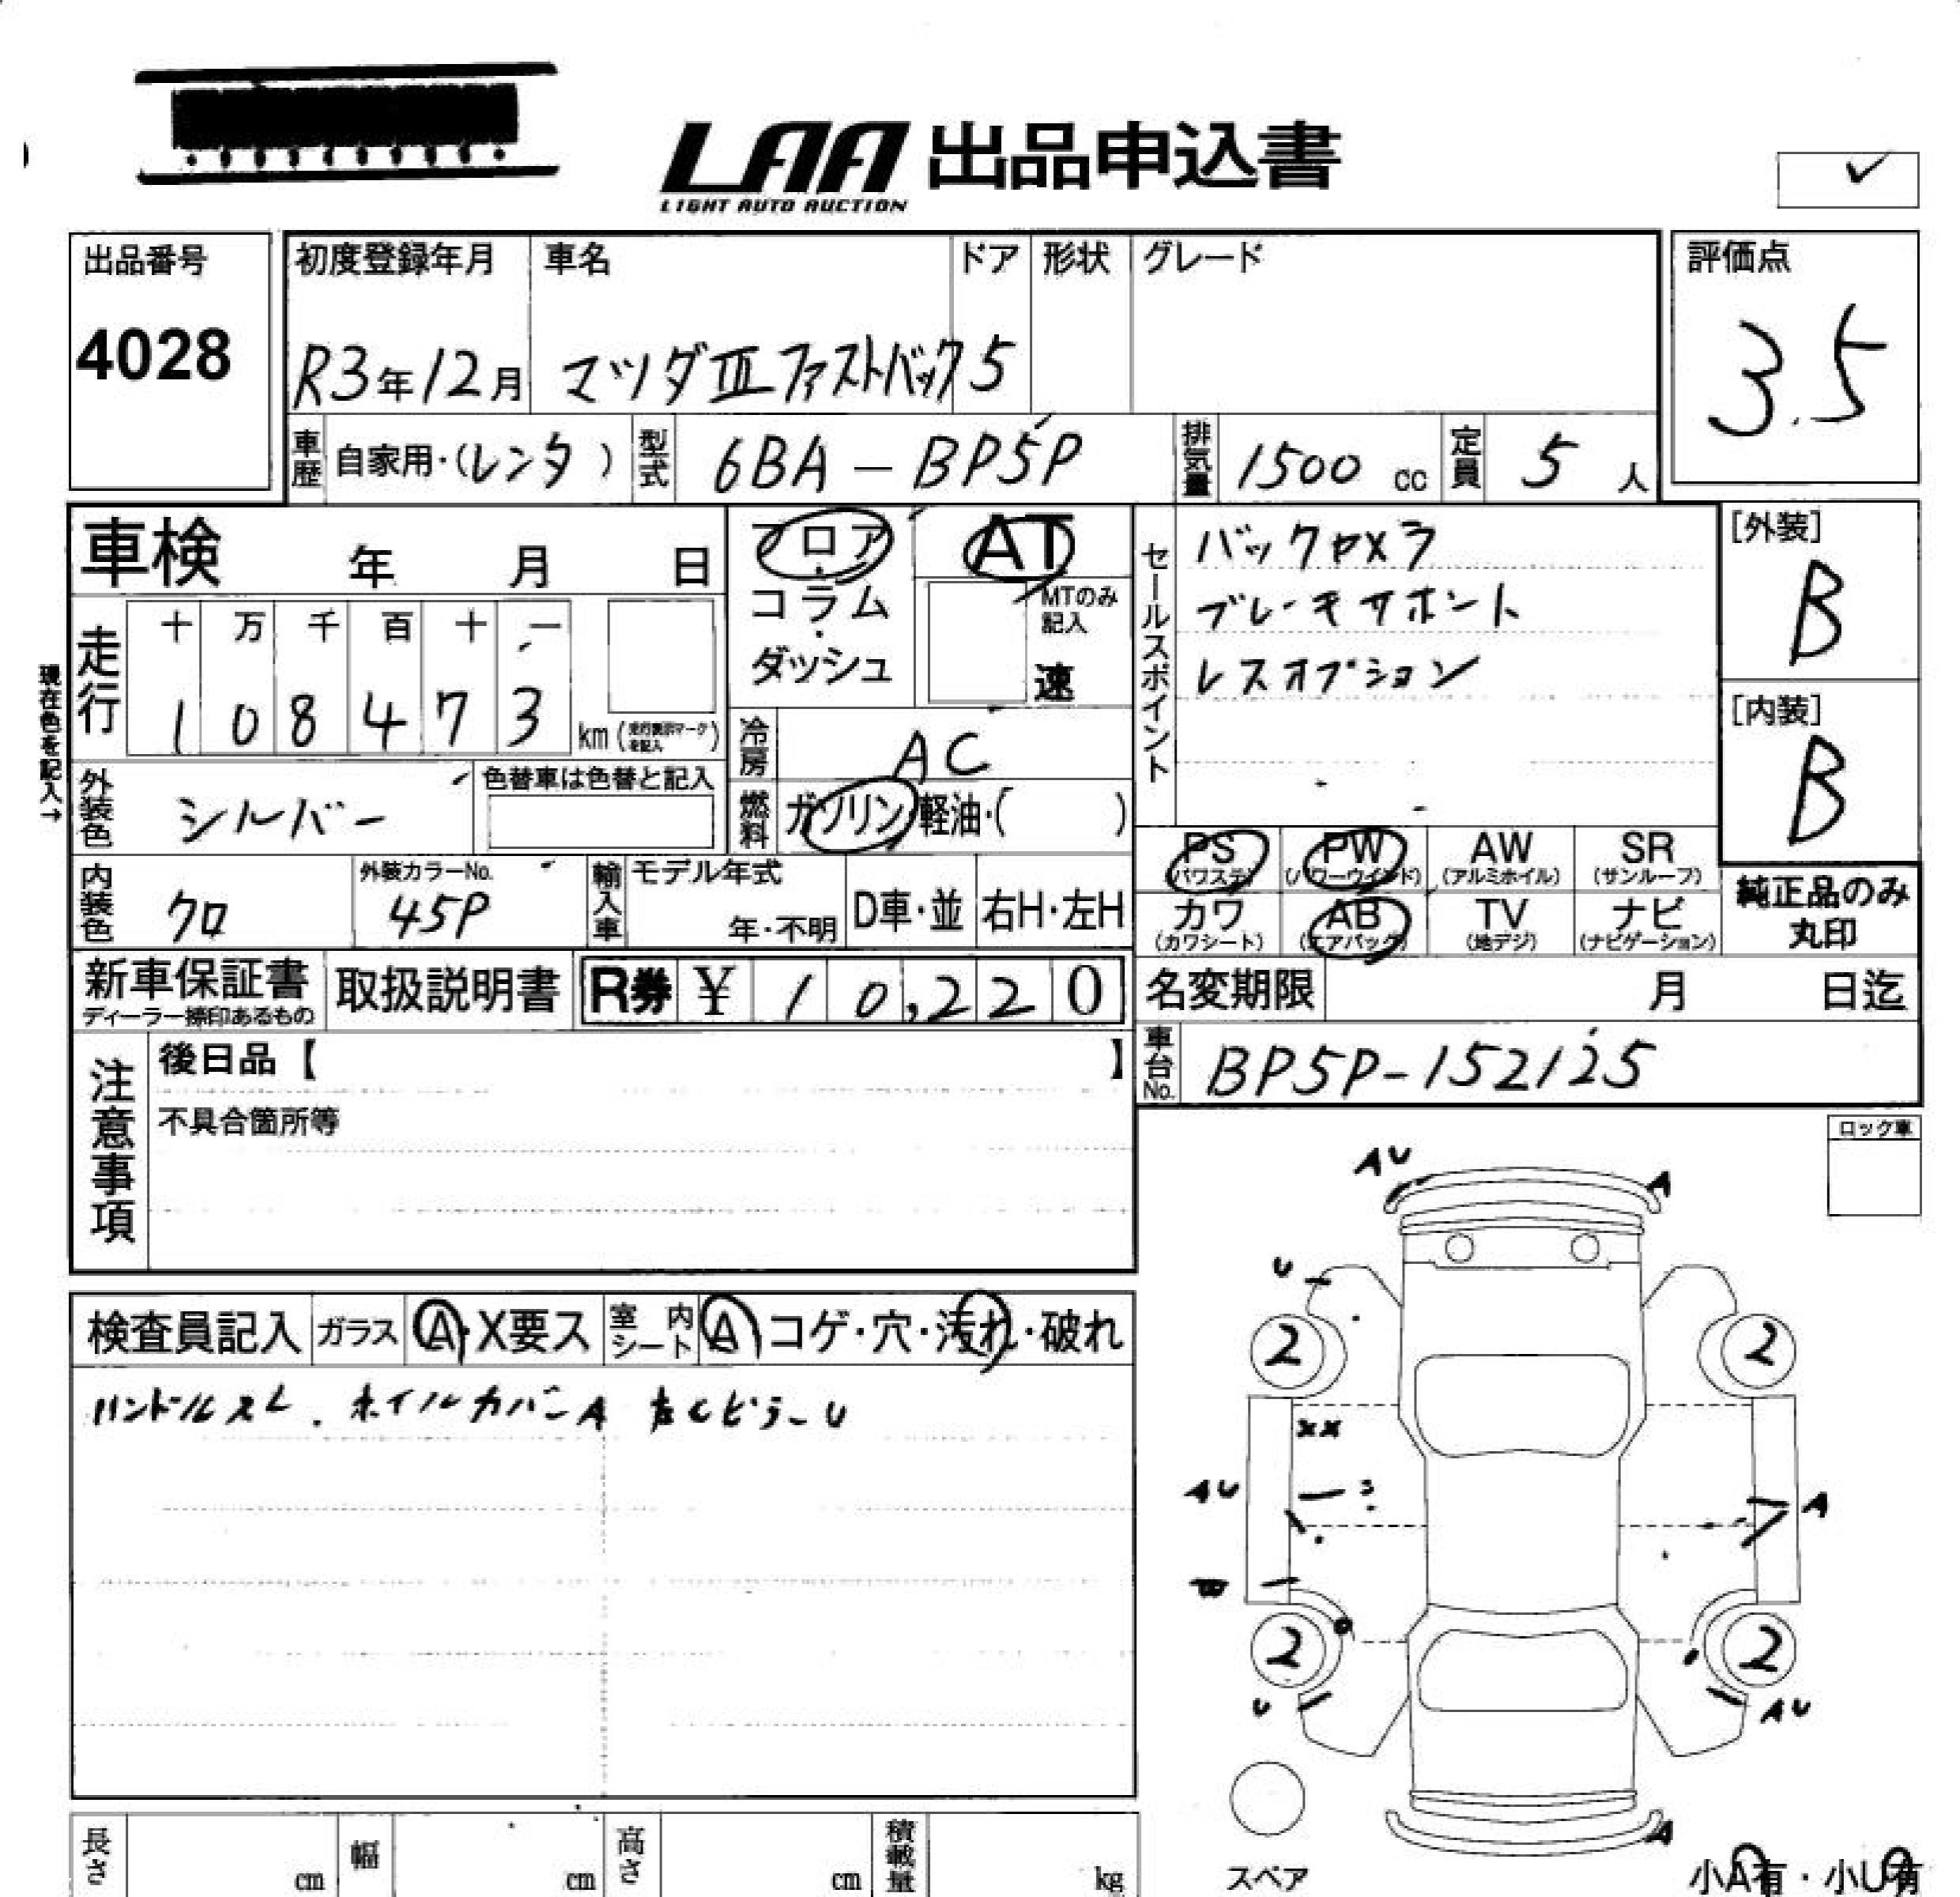 LAA 出品申込書
LIGHT AUTO AUCTION
出品番号
4028
初度登録年月
R3年12月
車名
マツダⅢファストバック
ドア
5
形状
グレード
評価点
3.5
車歴
自家用・(レンタ)
型式
6BA-BP5P
排気量
1500 cc
定員
5 人
車検 年 月 日
フロア・コラム・ダッシュ
AT
MTのみ記入
速
セールスポイント
バックカメラ
ブレーキサポート
レスオプション
[外装]
B
[内装]
B
現在色を記入→
走行
十 万 千 百 十 一
1 0 8 4 7 3 km
冷房
AC
外装色
シルバー
色替車は色替と記入
燃料
ガソリン・軽油・( )
PS (パワステ)
PW (パワーウインド)
AW (アルミホイル)
SR (サンルーフ)
カワ (カワシート)
AB (エアバッグ)
TV (地デジ)
ナビ (ナビゲーション)
純正品のみ
丸印
内装色
クロ
外装カラーNo.
45P
輸入車
モデル年式
年・不明
D車・並
右H・左H
新車保証書
ディーラー捺印あるもの
取扱説明書
R券 ¥ 10,220
名変期限 月 日迄
車台No.
BP5P-152125
注意事項
後日品【 】
不具合箇所等
ロック車
検査員記入
ガラス
A・X要ス
室内シート
A コゲ・穴・汚れ・破れ
ハンドルスレ. ホイルカバーA 左CピラーU
AU
A
U
2
2
XX
AU
A
2
2
U
AU
A
スペア
小A有・小U有
長さ cm
幅 cm
高さ cm
積載量 kg